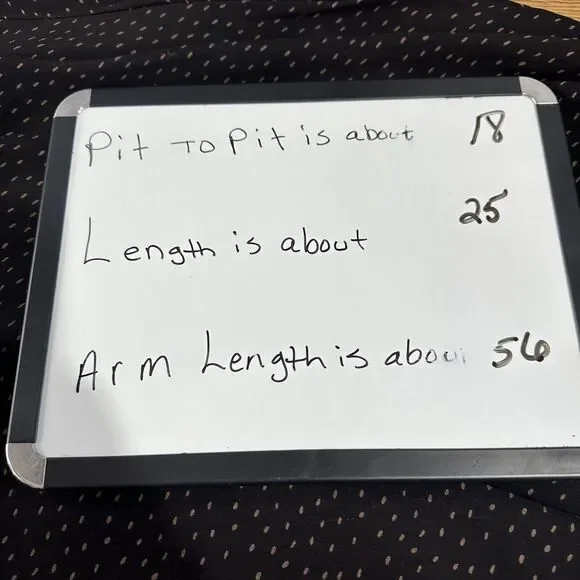 Pit To Pit is about 18
Length is about 25
Arm Length is about 56